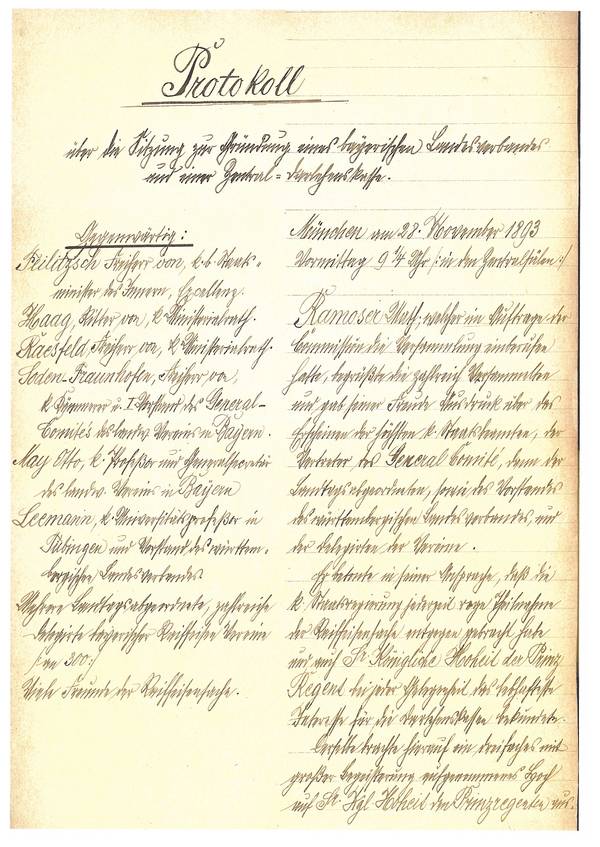 Protokoll
über die Sitzung zur Gründung eines bayerischen Landesverbandes
und einer Zentral=Darlehenskasse.
Gegenwärtig:
Feilitzsch Freiherr von, k. b. Staats-
minister des Innern, Excellenz.
Haag, Ritter von, k. Ministerialrath.
Raesfeld, Freiherr von, k. Ministerialrath.
Soden-Fraunhofen, Freiherr von,
k. Kämmerer u. I. Vorstand des General-
Comités des landw. Vereins in Bayern.
May Otto, k. Professor und Generalsecretär
des landw. Vereins in Bayern
Leemann, k. Universitätsprofessor in
Tübingen und Vorstand des württem-
bergischen Landesverbandes
Mehrere Landtagsabgeordnete, zahlreiche
Delegirte bayerischer Raiffeisen Vereine
/: an 300 :/
Viele Freunde der Raiffeisensache.
München am 28. November 1893
Vormittag 9 1/4 Uhr /: in den Zentralsälen :/
Ramoser Math., welcher im Auftrage der
Commission die Versammlung einberufen
hatte, begrüßte die zahlreich Versammelten
und gab seiner Freude Ausdruck über das
Erscheinen der höchsten k. Staatsbeamten, der
Vertreter des General Comité, dann der
Landtagsabgeordneten, sowie des Vorstandes
des württembergischen Landesverbandes, und
der Delegirten der Vereine.
Er betonte in seiner Ansprache, daß die
k. Staatsregierung jederzeit rege Theilnahme
der Raiffeisensache entgegen gebracht habe
und auch Se. Königliche Hoheit der Prinz
Regent bei jeder Gelegenheit das lebhafteste
Interesse für die Darlehenskassen bekundete.
Derselbe brachte hierauf ein dreifaches mit
großer Begeisterung aufgenommenes Hoch
auf Se. Kgl. Hoheit den Prinzregenten aus.